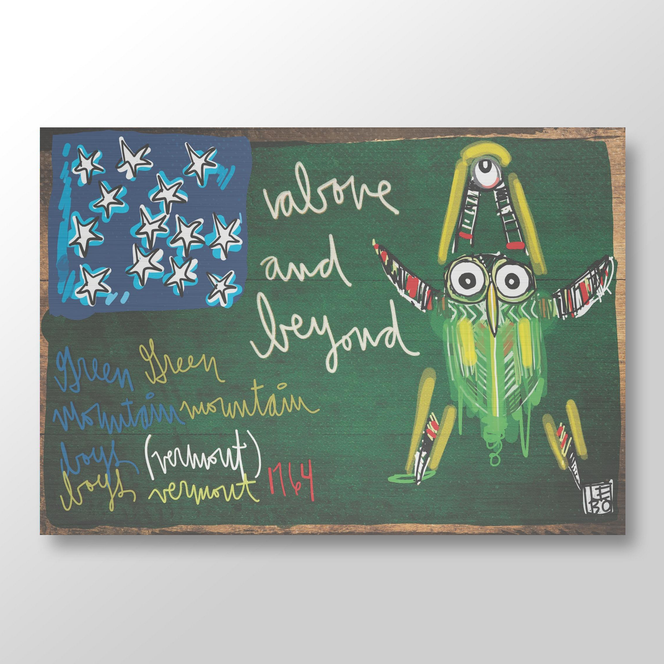 above
and
beyond
green Green
mountain mountain
boys (vermont)
boys vermont 1764
LEE
BO